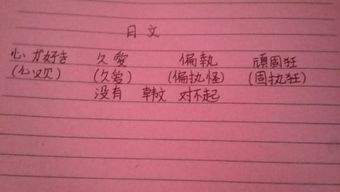 日文
心が好き 久愛 偏執 頑固狂
(心叹) (久爱) (偏执怪) (固执狂)
没有 韩文 对不起